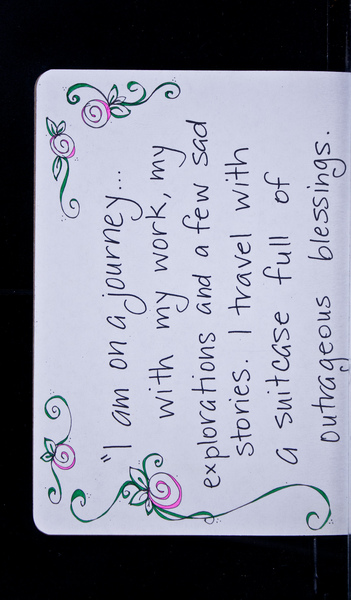 "I am on a journey...
with my work, my
explorations and a few sad
stories. I travel with
a suitcase full of
outrageous blessings.